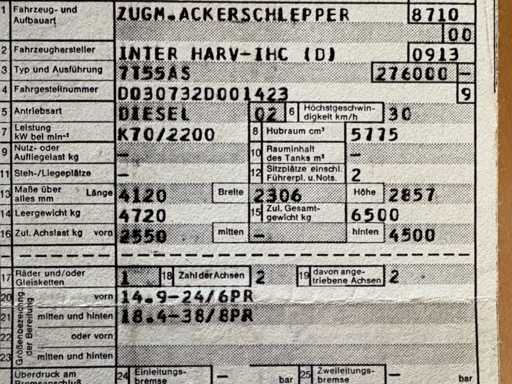 1 Fahrzeug- und Aufbauart ZUGM.ACKERSCHLEPPER 8710
00
2 Fahrzeughersteller INTER HARV-IHC (D) 0913
3 Typ und Ausführung 7T55AS 276000 –
4 Fahrgestellnummer D030732D001423 9
5 Antriebsart DIESEL 02 6 Höchstgeschwindigkeit km/h 30
7 Leistung kW bei min⁻¹ K70/2200 8 Hubraum cm³ 5775
9 Nutz- oder Aufliegelast kg – 10 Rauminhalt des Tanks m³ –
11 Steh-/Liegeplätze – 12 Sitzplätze einschl. Führerpl. u. Nots. 2
13 Maße über alles mm Länge 4120 Breite 2306 Höhe 2857
14 Leergewicht kg 4720 15 Zul. Gesamtgewicht kg 6500
16 Zul. Achslast kg vorn 2550 mitten – hinten 4500
17 Räder und/oder Gleisketten 1 18 Zahl der Achsen 2 19 davon angetriebene Achsen 2
20 Größenbezeichng. der Bereifung vorn 14.9-24/6PR
21 mitten und hinten 18.4-38/8PR
22 oder vorn
23 mitten und hinten
Überdruck am Bremsanschluß 24 Einleitungsbremse – bar 25 Zweileitungsbremse – bar